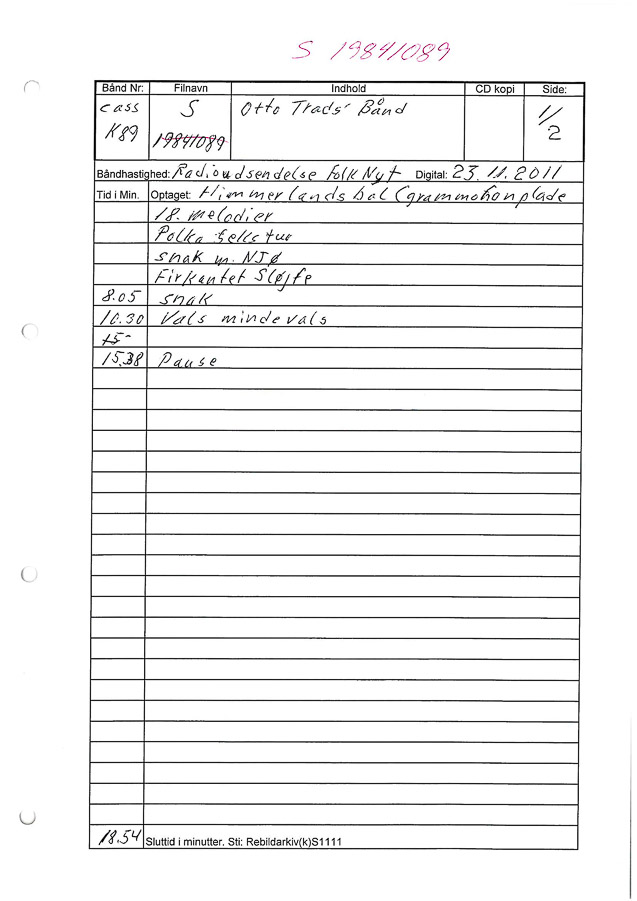 S 1984/089
Bånd Nr: Filnavn Indhold CD kopi Side:
cass S Otto Trads' Bånd 1/
K89 1984/089 2
Båndhastighed: Radioudsendelse folk Nyt Digital: 23.11.2011
Tid i Min. Optaget: Himmerlands bal (grammofonplade
18. melodier
Polka sekstur
snak m. NJØ
Firkantet Sløjfe
8.05 snak
10.30 Vals mindevals
15-
15.38 Pause
18.54 Sluttid i minutter. Sti: Rebildarkiv(k)S1111